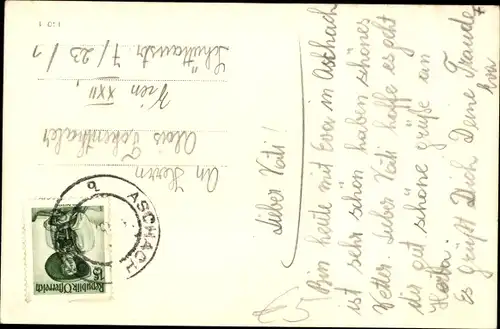 Lieber Vati!
Bin heute mit Eva in Aschach
ist sehr schön haben schönes
Wetter. Lieber Vati hoffe es geht
dir gut schöne grüße an
Herta.
Es grüßt Dich Deine Traude
Eva
An Herrn
Alois
Wien XXII,
7/23/1
ASCHACH
Republik Österreich